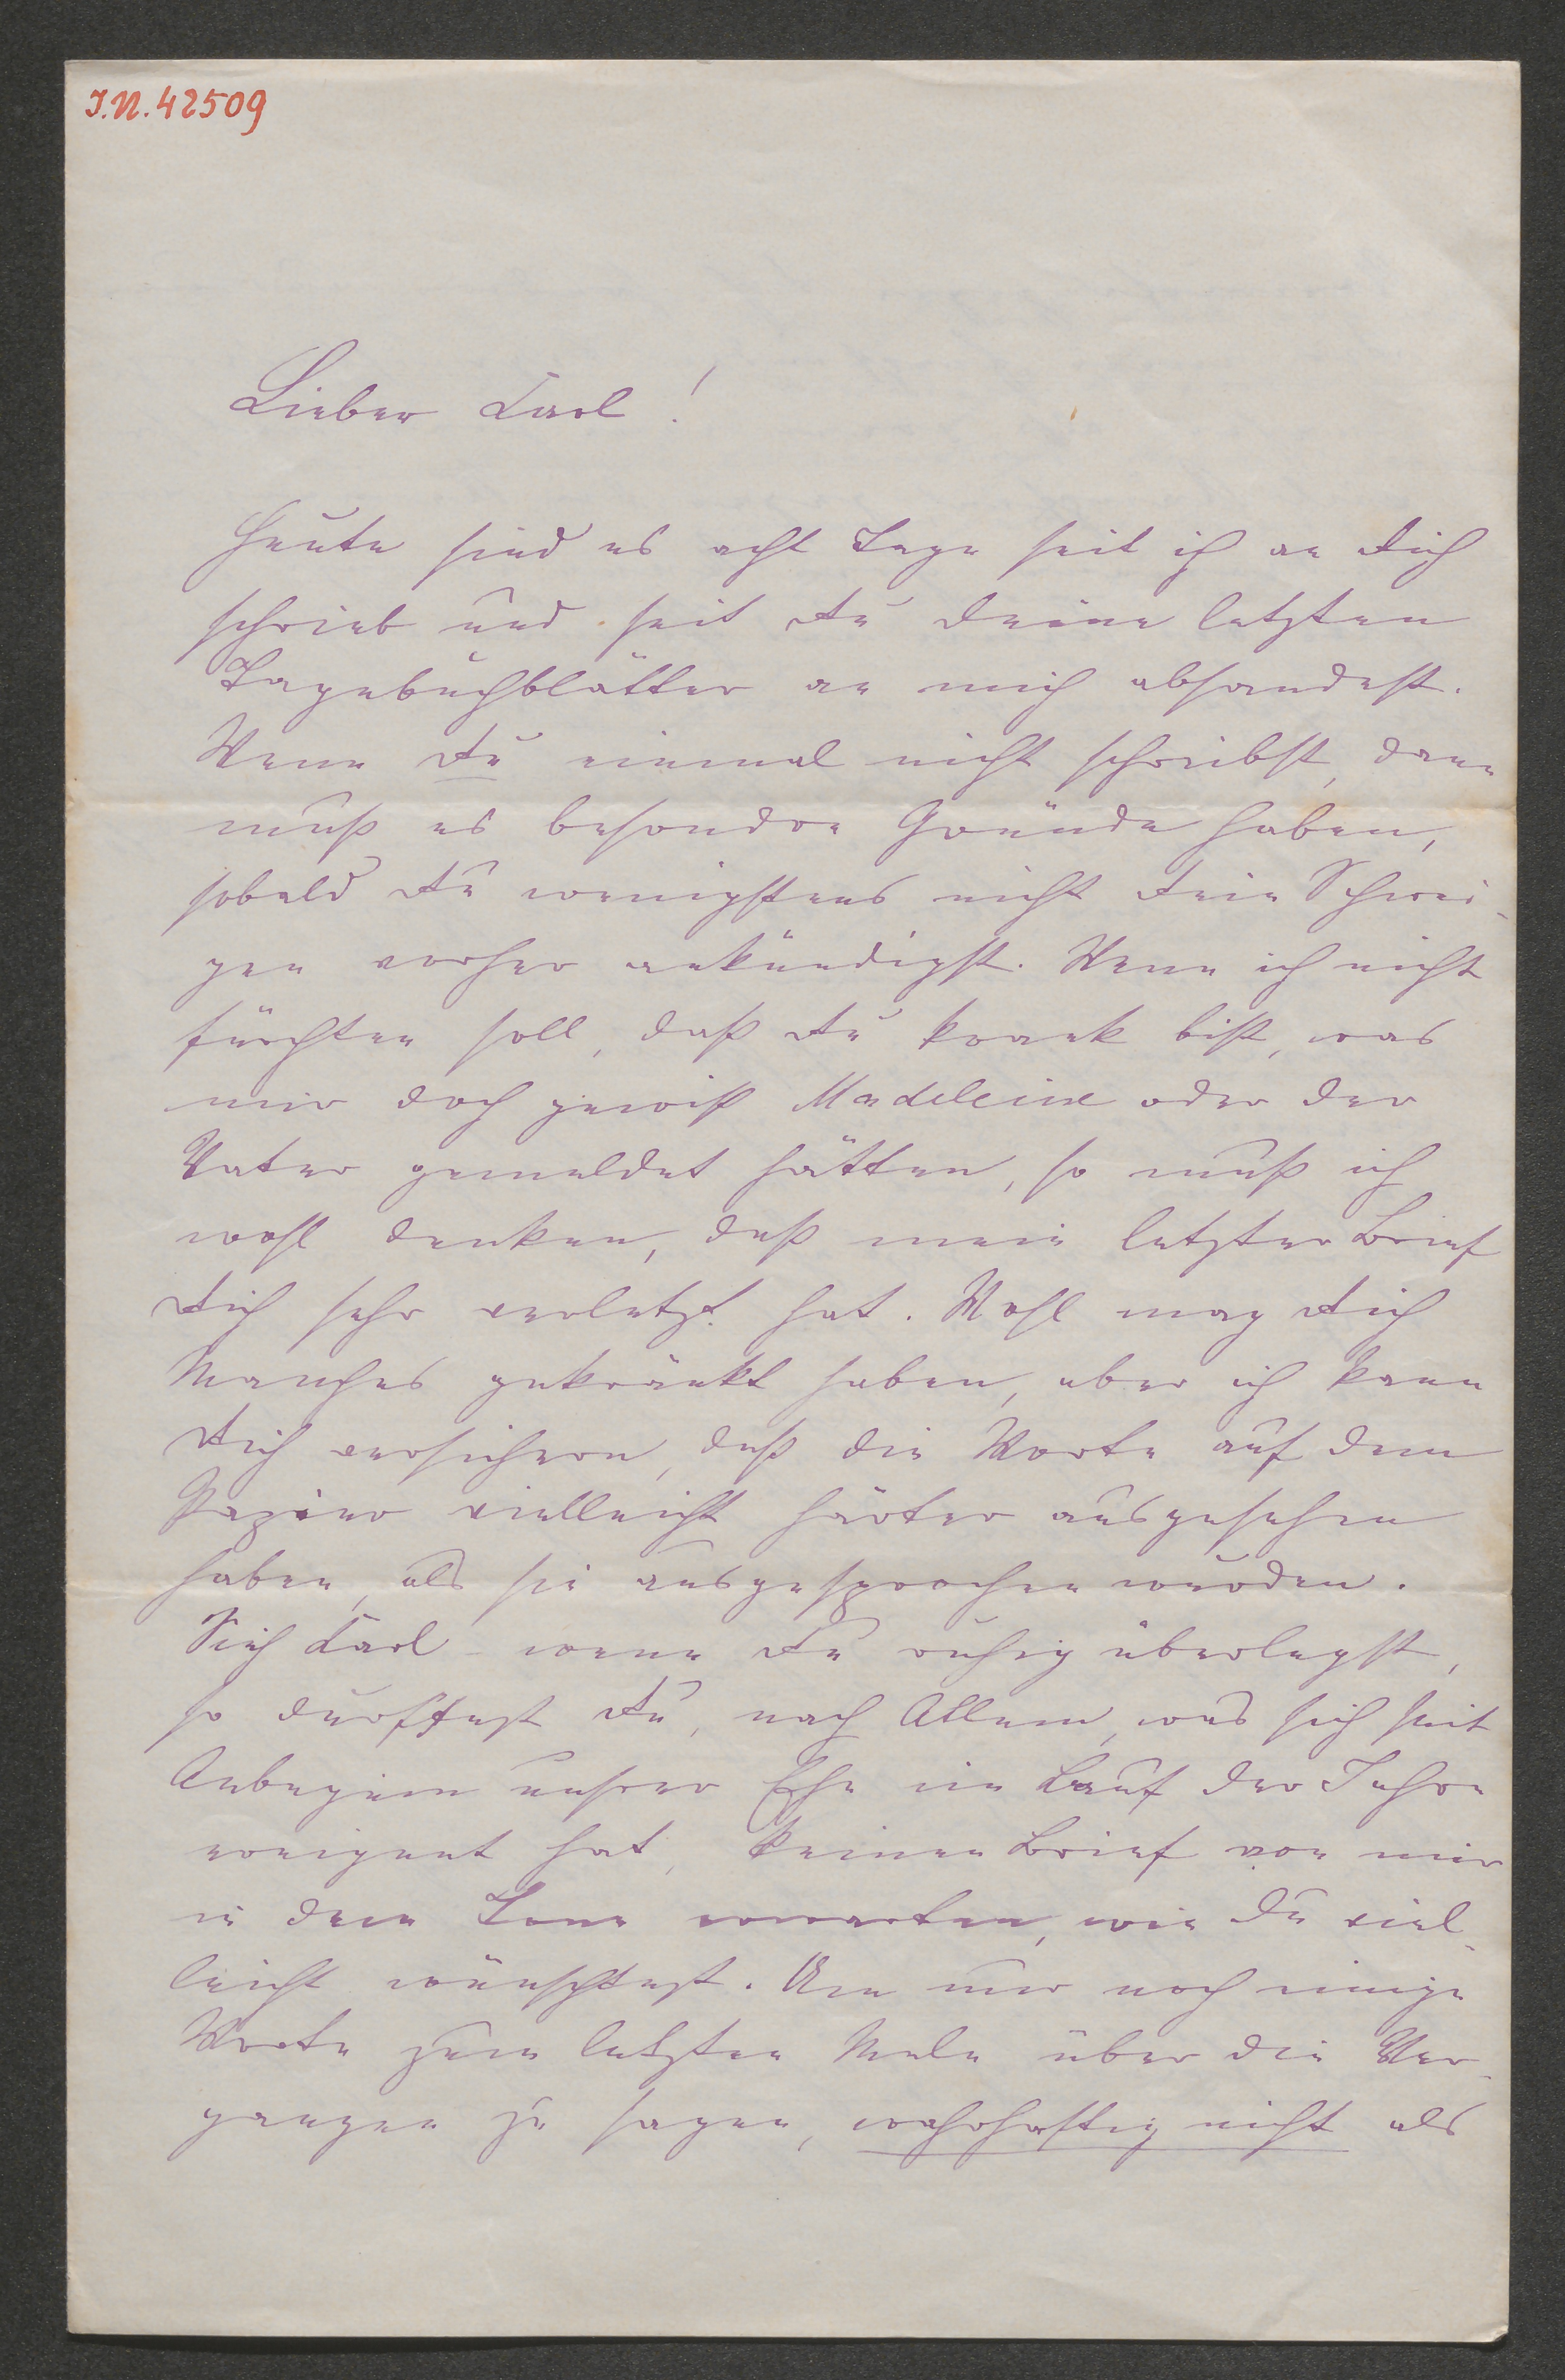 I.N. 42509
Lieber Karl!
Heute sind es acht Tage seit ich an Dich
schrieb und seit Du deine letzten
Tagebuchblätter an mich absandest.
Wenn Du einmal nicht schreibst, dann
muß es besondre Gründe haben,
sobald Du wenigstens nicht Dein Schwei-
gen vorher ankündigst. Wenn ich nicht
fürchten soll, daß Du krank bist, was
mir doch gewiß Madeleine oder der
Vater gemeldet hätten, so muß ich
wohl denken, daß mein letzter Brief
Dich sehr verletzt hat. Wohl mag Dich
Manches gekränkt haben, aber ich kann
Dich versichern, daß die Worte auf dem
Papier vielleicht härter ausgesehen
haben, als sie ausgesprochen wurden.
Sieh Karl - wenn Du ruhig überlegst,
so durftest Du, nach Allem, was sich seit
Anbeginn unsrer Ehe im Lauf der Jahre
ereignet hat, keinen Brief von mir
in dem Tone erwarten, wie Du viel-
leicht wünschtest. Um nur noch einige
Worte zum letzten Male über die Ver-
gangen zu sagen, wahrhaftig nicht als